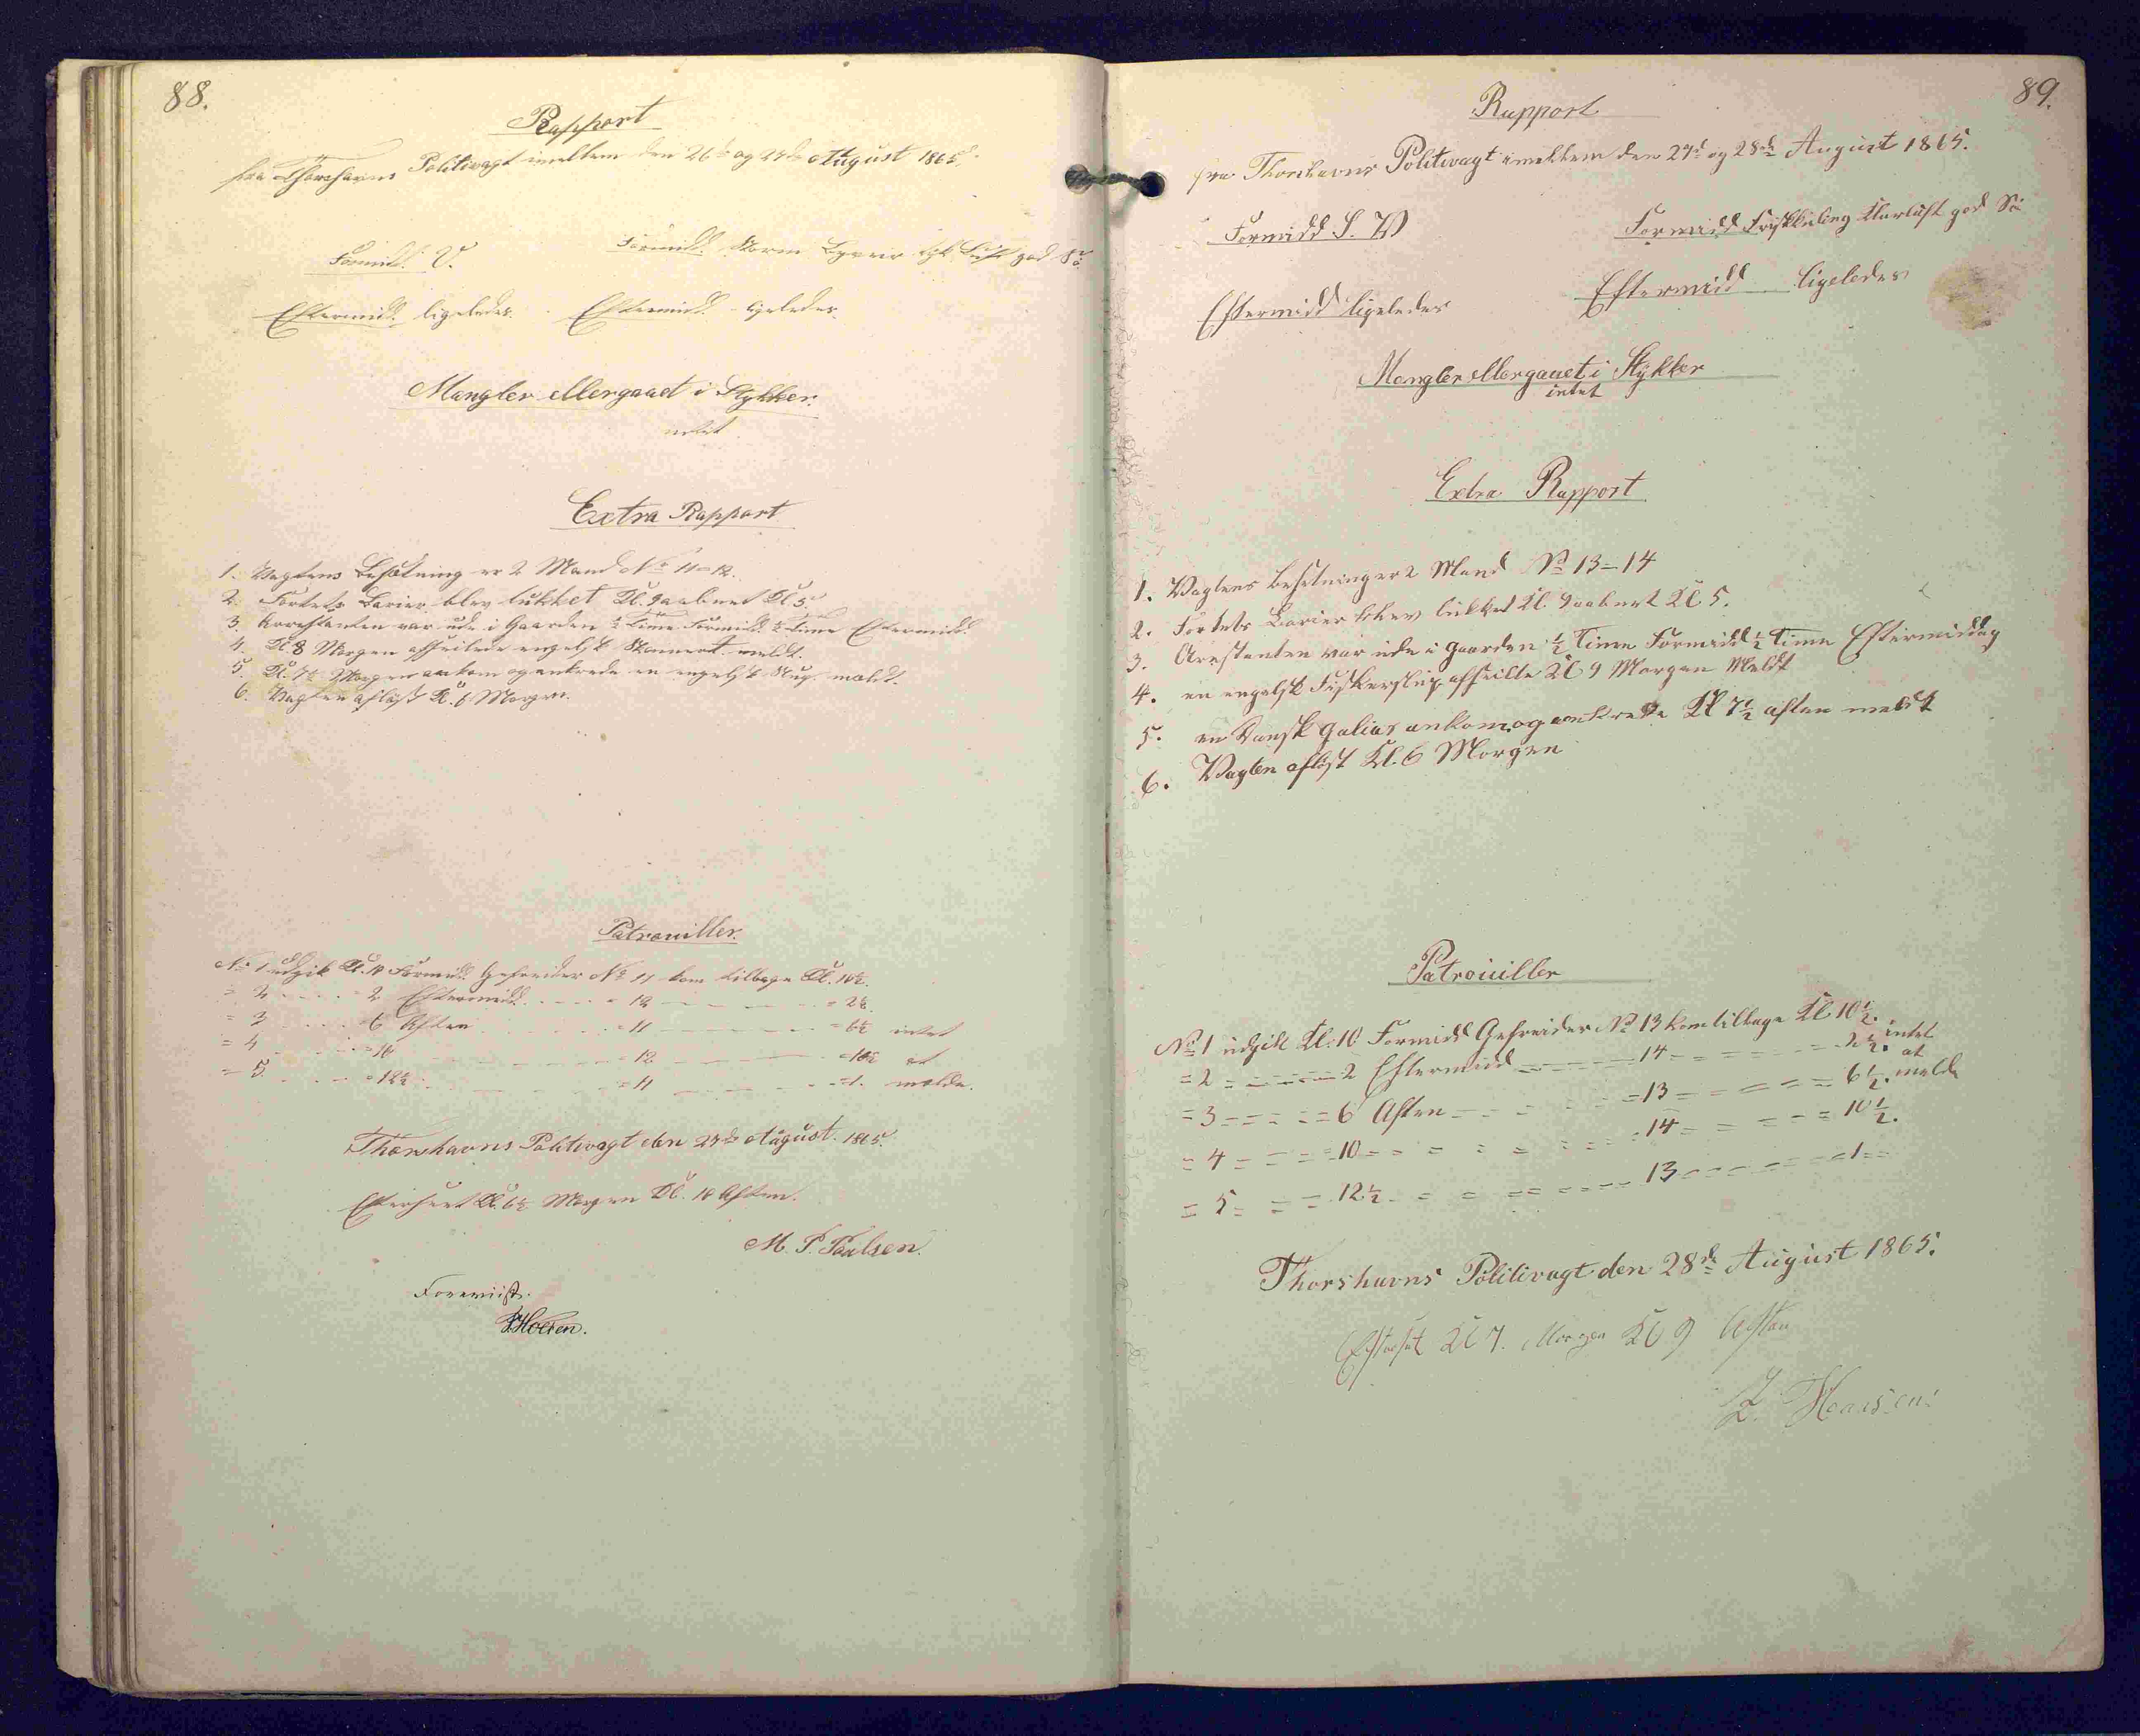 88.
Rapport
fra Thorshavns Politivagt imellem den 26de og 27de August 1865.
Formidd. V.
Formidd. Storm Byevir tyk Luft god Sö
Eftermidd. ligeledes.
Eftermidd. ligeledes.
Mangler ellergaaet i Stykker.
intet
Extra Rapport
1. Vagtens Besætning er 2 Mand No 11=12.
2. Fortets Barier blev lukket Kl. 9 aabnet Kl 5.
3. Arrestanten var ude i Gaarden ½ Time Formidd. ½ Time Eftermidd.
4. Kl. 8 Morgen affseilede engelsk Skonnert. meldt.
5. Kl. 7½ Morgen ankom og ankrede en engelsk Slup. meldt.
6. Vagten aflöst Kl. 6 Morgen.
Patrouiller.
No 1 udgik Kl. 10 Formidd. Gefreider No 11 kom tilbage Kl. 10½.
= 2 = 2 Eftermidd. = 12 = 2½.
= 3 = 6 Aften = 11 = 6½ intet
= 4 = 10 = 12 = 10½ at
= 5 = 12½ = 11 = 1. melde.
Thorshavns Politivagt den 27de August. 1865.
Efterseet Kl. 6½ Morgen Kl. 10 Aften.
M. P. Poulsen.
Foreviist.
89.
Rapport
fra Thorshavns Politivagt imellem den 27de og 28de August 1865.
Formidd S. V
Formidd Friskkuling Klarluft god Sö
Eftermidd ligeledes
Eftermidd ligeledes
Mangler ellergaaet i Stykker
intet
Extra Rapport
1. Vagtens besetning er 2 Mand No 13=14
2. Fortets Barier blev lukket Kl. 9 aabnet Kl 5.
3. Arestanten var ude i gaarden ½ Time Formidd ½ Time Eftermiddag
4. en engelsk Fiskerslup affseilte Kl 9 Morgen Meldt
5. en Dansk galias ankom og ankrede Kl 7½ aften meldt
6. Vagten aflöst Kl. 6 Morgen
Patrouiller
No 1 udgik Kl. 10 Formidd Gefreider No 13 kom tilbage Kl 10½.
= 2 = 2 Eftermidd 14 = 2½. intet
= 3 = 6 Aften = 13 = 6½. at melde
= 4 = 10 = 14 = 10½.
= 5 = 12½ = 13 = 1 =
Thorshavns Politivagt den 28de August 1865.
Efterset Kl 7. Morgen Kl 9 Aften
Z. Hansen.